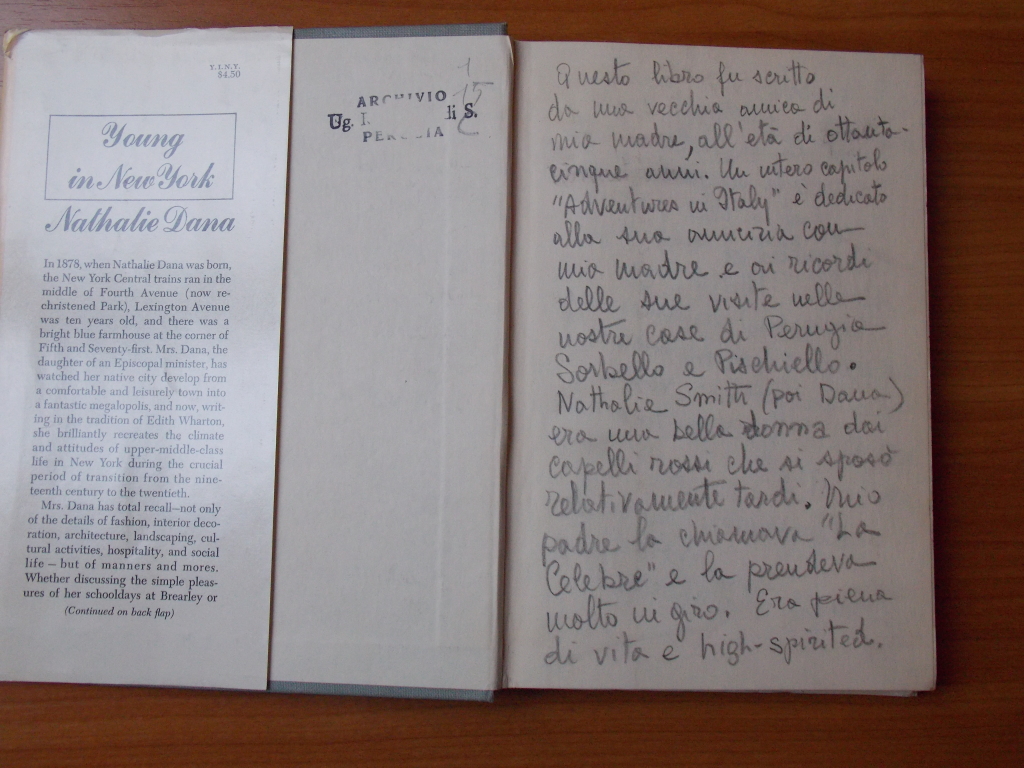 Y.I.N.Y.
$4.50
Young
in New York
Nathalie Dana
In 1878, when Nathalie Dana was born,
the New York Central trains ran in the
middle of Fourth Avenue (now re-
christened Park), Lexington Avenue
was ten years old, and there was a
bright blue farmhouse at the corner of
Fifth and Seventy-first. Mrs. Dana, the
daughter of an Episcopal minister, has
watched her native city develop from
a comfortable and leisurely town into
a fantastic megalopolis, and now, writ-
ing in the tradition of Edith Wharton,
she brilliantly recreates the climate
and attitudes of upper-middle-class
life in New York during the crucial
period of transition from the nine-
teenth century to the twentieth.
Mrs. Dana has total recall—not only
of the details of fashion, interior deco-
ration, architecture, landscaping, cul-
tural activities, hospitality, and social
life — but of manners and mores.
Whether discussing the simple pleas-
ures of her schooldays at Brearley or
(Continued on back flap)
ARCHIVIO
Ug. I. li S.
PERUGIA
Questo libro fu scritto
da una vecchia amica di
mia madre, all'età di ottanta-
cinque anni. Un intero capitolo
"Adventures in Italy" è dedicato
alla sua amicizia con
mia madre e ai ricordi
delle sue visite nelle
nostre case di Perugia
Sorbello e Pischiello.
Nathalie Smith (poi Dana)
era una bella donna dai
capelli rossi che si sposò
relativamente tardi. Mio
padre la chiamava "La
Celebre" e la prendeva
molto in giro. Era piena
di vita e high-spirited.